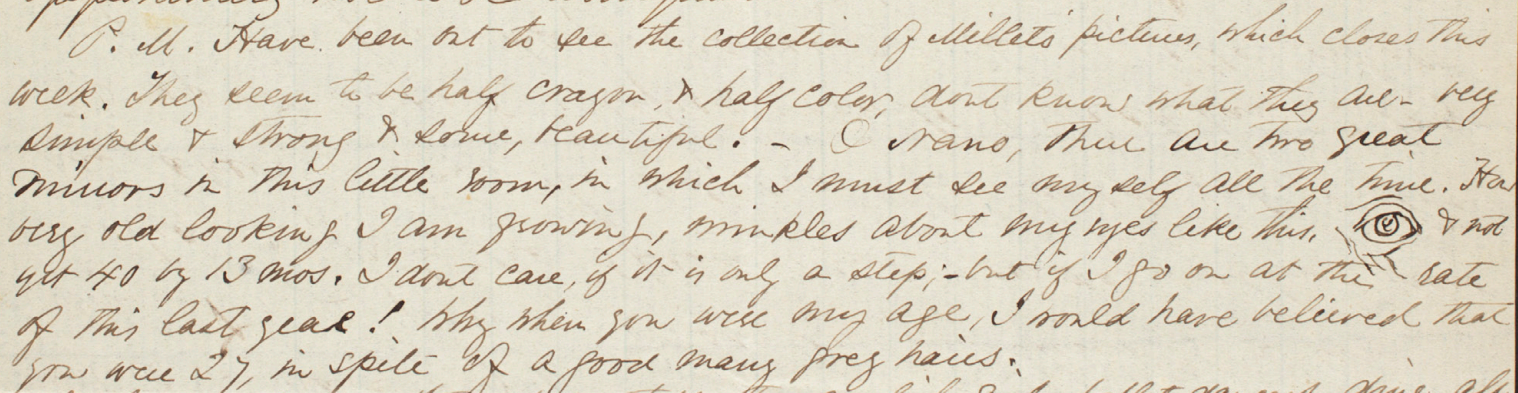 P. M. Have been out to see the collection of Millet's pictures, which closes this
week. They seem to be half crayon, & half color, dont know what they are - very
simple & strong & some, beautiful. - O Nano, there are two great
mirrors in this little room, in which I must see myself all the time. How
very old looking I am growing, wrinkles about my eyes like this. & not
yet 40 by 13 mos. I dont care, if it is only a step; - but if I go on at the rate
of this last year! Why when you were my age, I would have believed that
you were 27, in spite of a good many grey hairs.